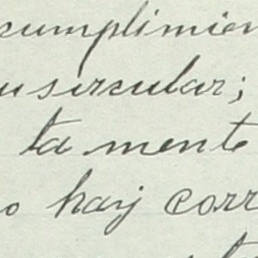 cumplimien
u sircular;
ta mente
o hay corr